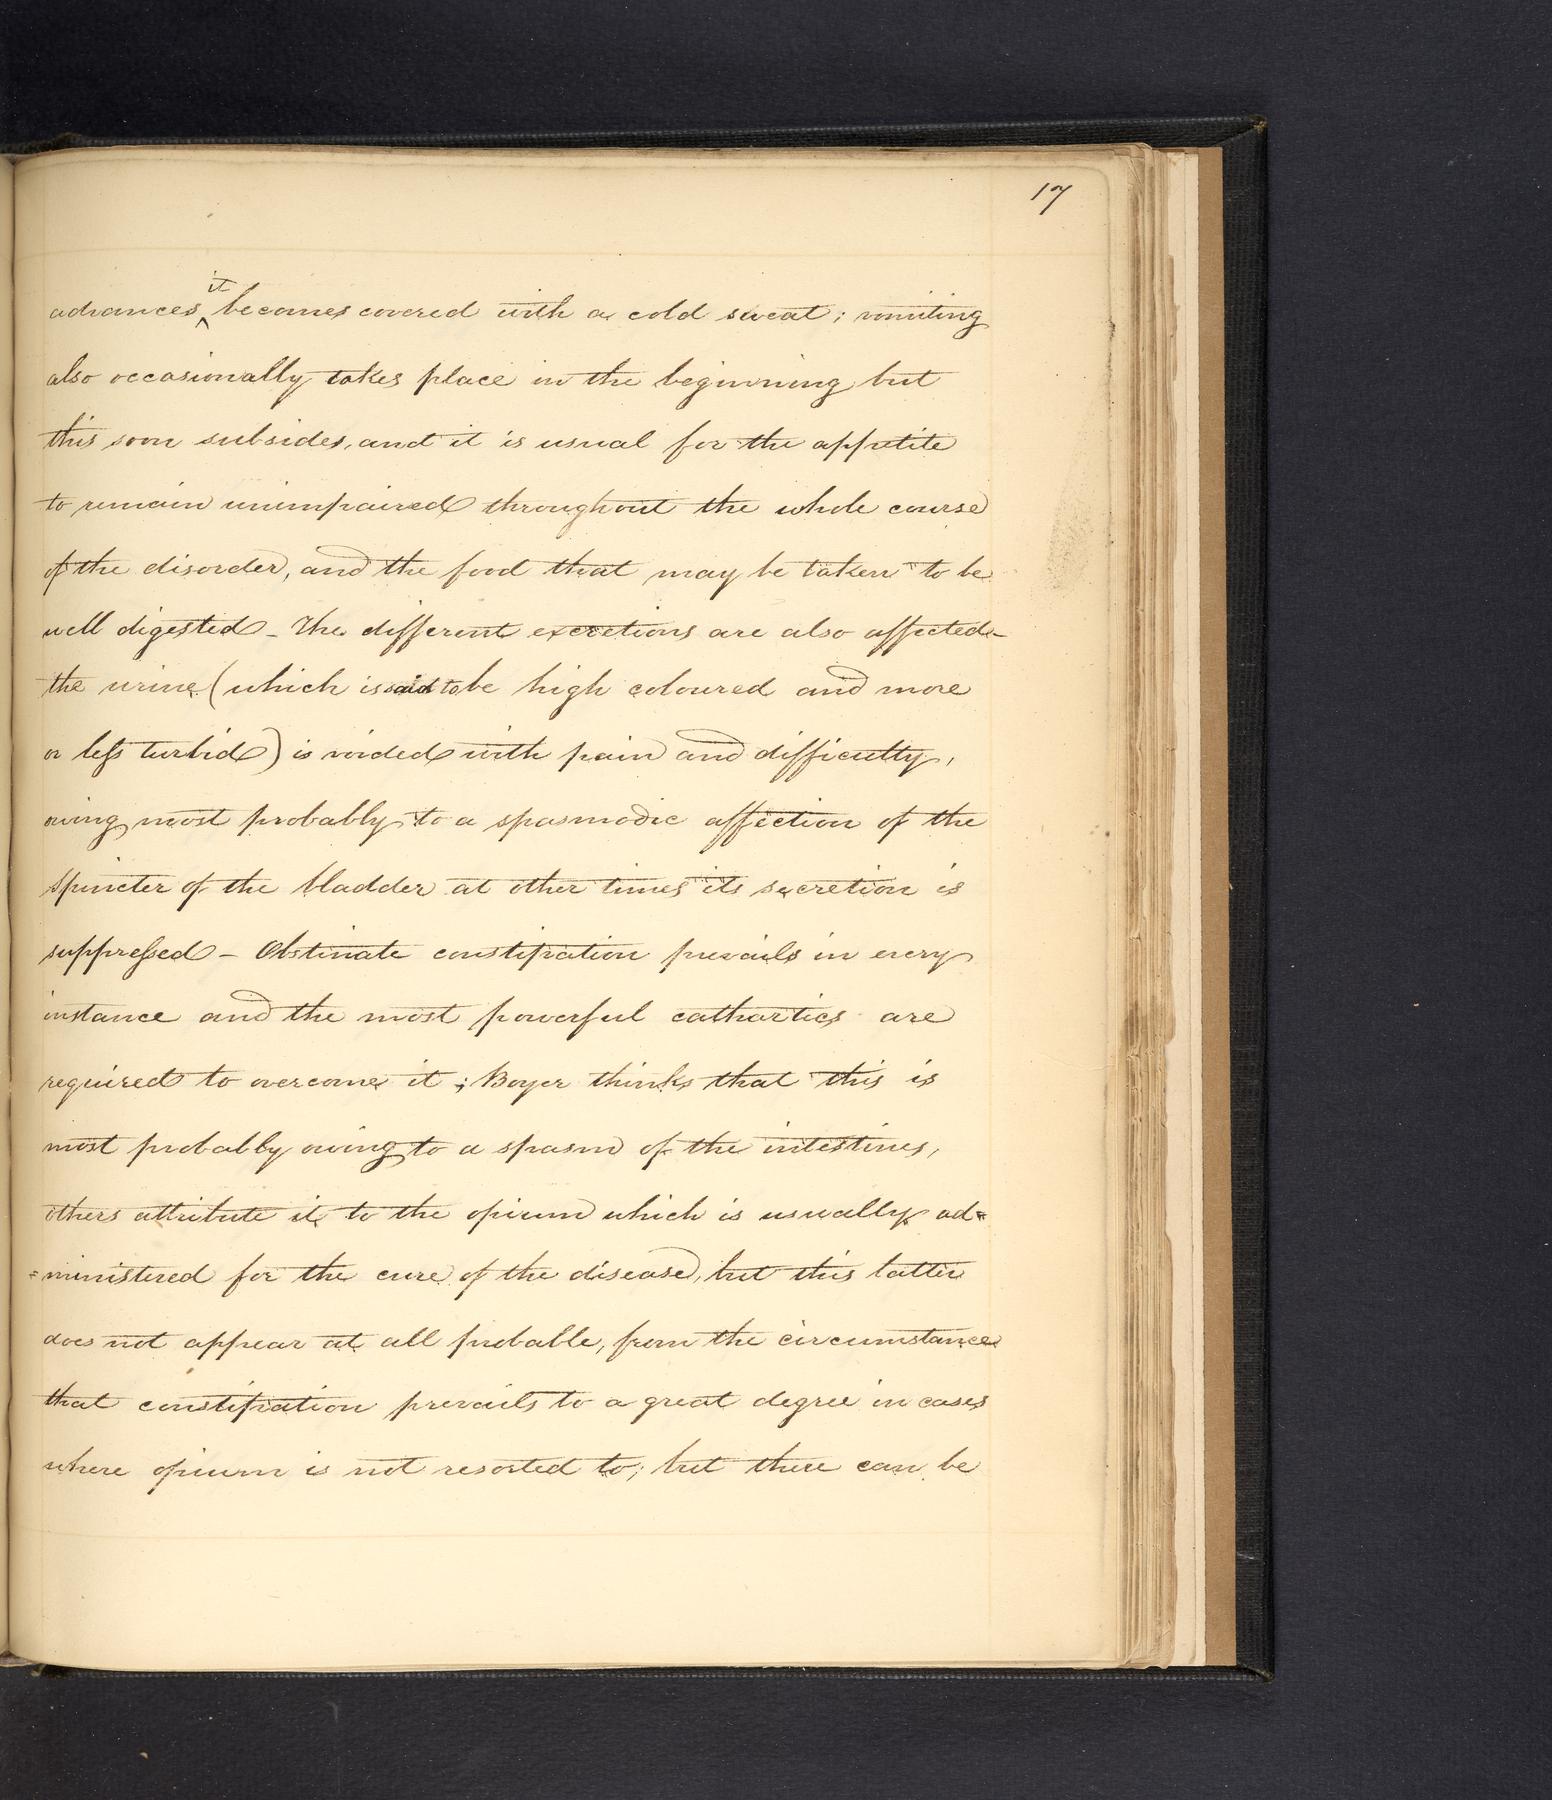 17
advances, it becomes covered with a cold sweat; vomiting
also occasionally takes place in the beginning but
this soon subsides, and it is usual for the appetite
to remain unimpaired throughout the whole course
of the disorder, and the food that may be taken to be
well digested - The different excretions are also affected -
the urine (which is said to be high coloured and more
or less turbid) is voided with pain and difficulty,
owing most probably to a spasmodic affection of the
spincter of the bladder at other times its secretion is
suppressed - Obstinate constipation prevails in every
instance and the most powerful cathartics are
required to overcome it; Boyer thinks that this is
most probably owing to a spasm of the intestines,
others attribute it to the opium which is usually ad=
=ministered for the cure of the disease, but this latter
does not appear at all probable, from the circumstance
that constipation prevails to a great degree in cases
where opium is not resorted to; but there can be